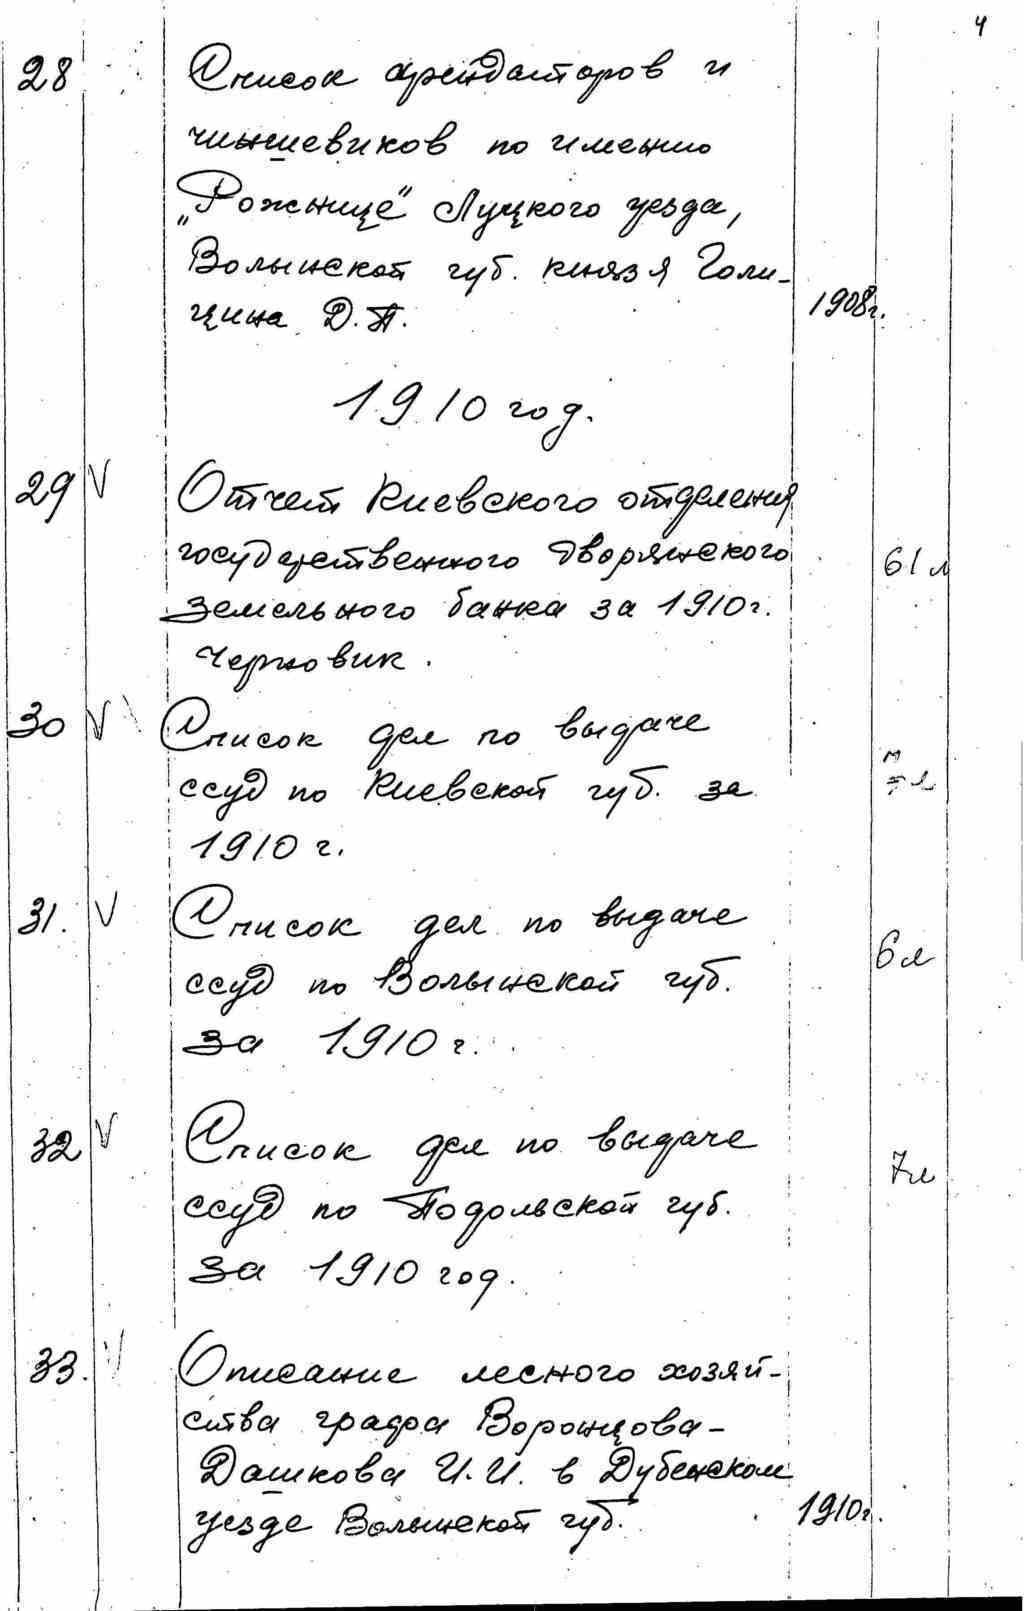 4
28 Список арендаторов и
чиншевиков по имению
„Рожище" Луцкого уезда,
Волынской губ. князя Голи-
цина Д.П. 1908г.
1910 год.
29 V Отчет Киевского отделения
государственного дворянского 61 л
земельного банка за 1910г.
Черновик.
30 V Список дел по выдаче
ссуд по Киевской губ. за
1910 г.
31. V Список дел по выдаче
ссуд по Волынской губ. 6 л
за 1910 г.
32 V Список дел по выдаче
ссуд по Подольской губ. 7 л
за 1910 год.
33. V Описание лесного хозяй-
ства графа Воронцова-
Дашкова И.И. в Дубенском
уезде Волынской губ. 1910г.